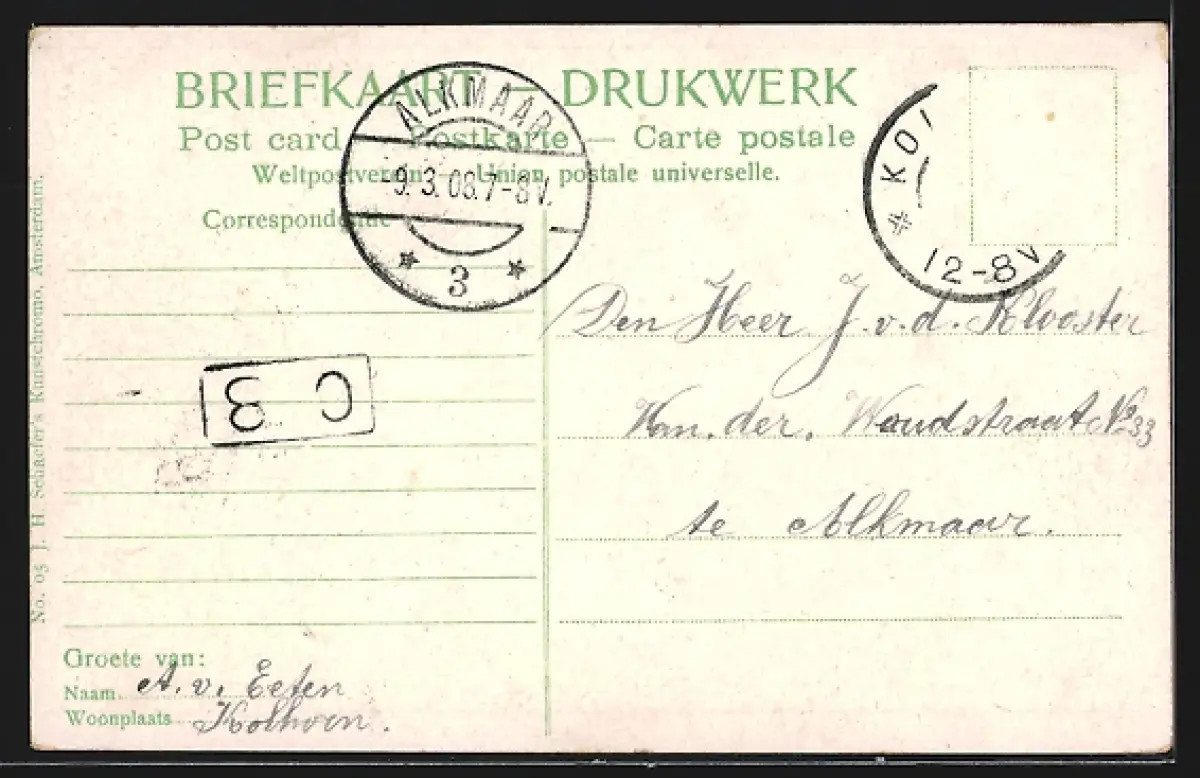 BRIEFKAART — DRUKWERK
Post card — Postkarte — Carte postale
Weltpostverein — Union postale universelle.
Correspondentie
ALKMAAR
-9. 3. 08. 7-8V.
* 3 *
* KO
12-8V
Den Heer J. v. d. Klooster
Wm. der. Woudstraat No 33
te Alkmaar.
C 3
Groete van:
Naam A. v. Eeten
Woonplaats Kolhorn.
No. 05 J. H. Schaefer's Kunstchromo, Amsterdam.